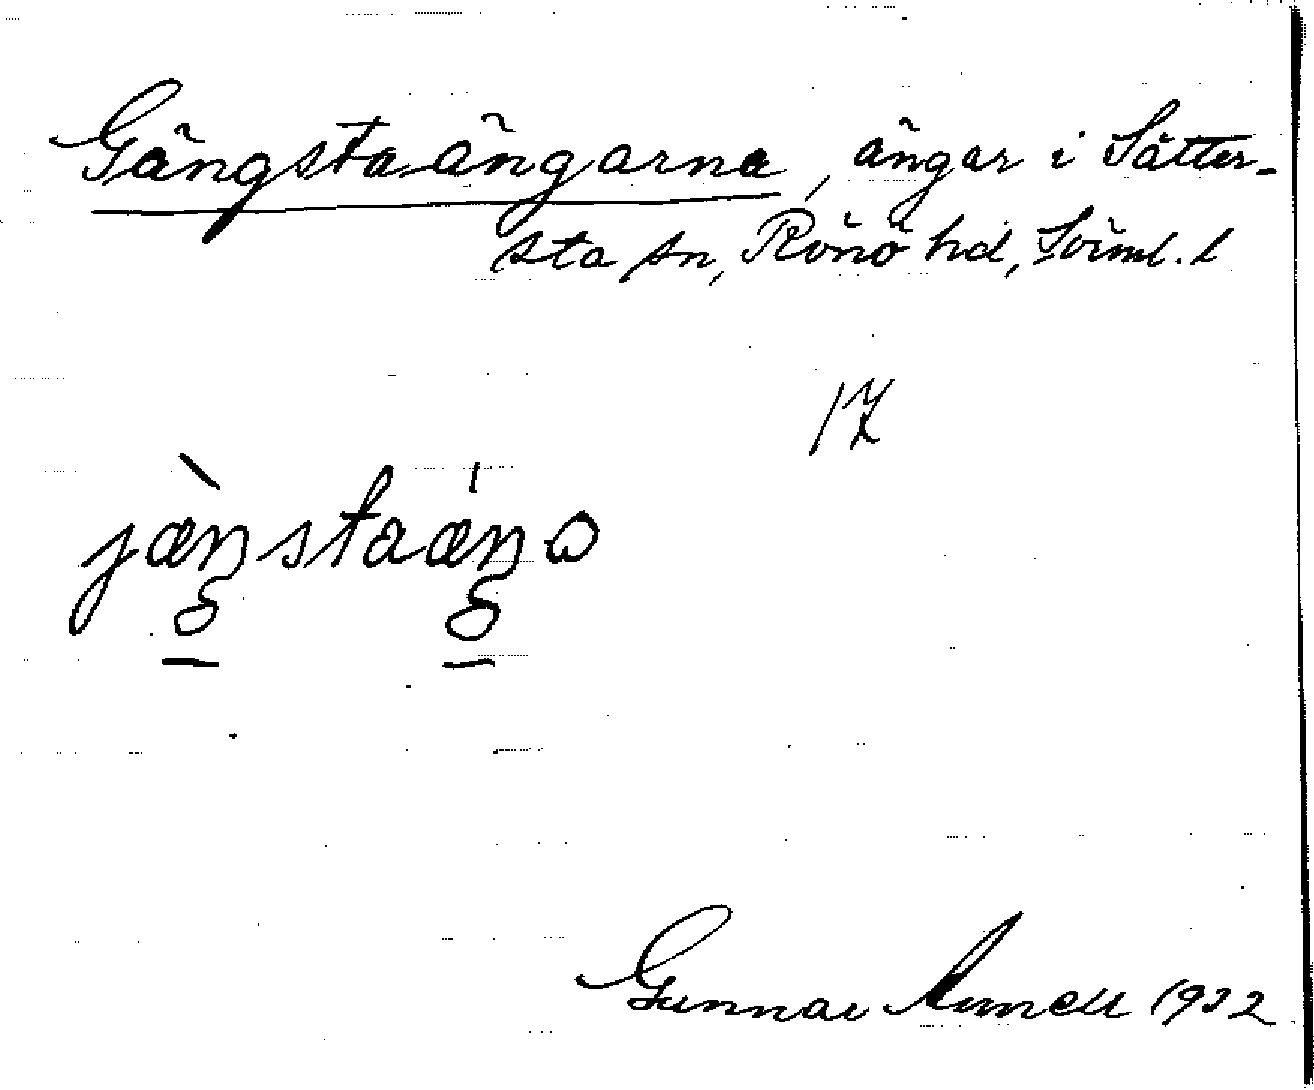 Gängstaängarna, ängar i Sätter-
sta sn, Rönö hd, Söml. l
17
jæ̀ŋstaæ̍ŋɷ
Gunnar 1932